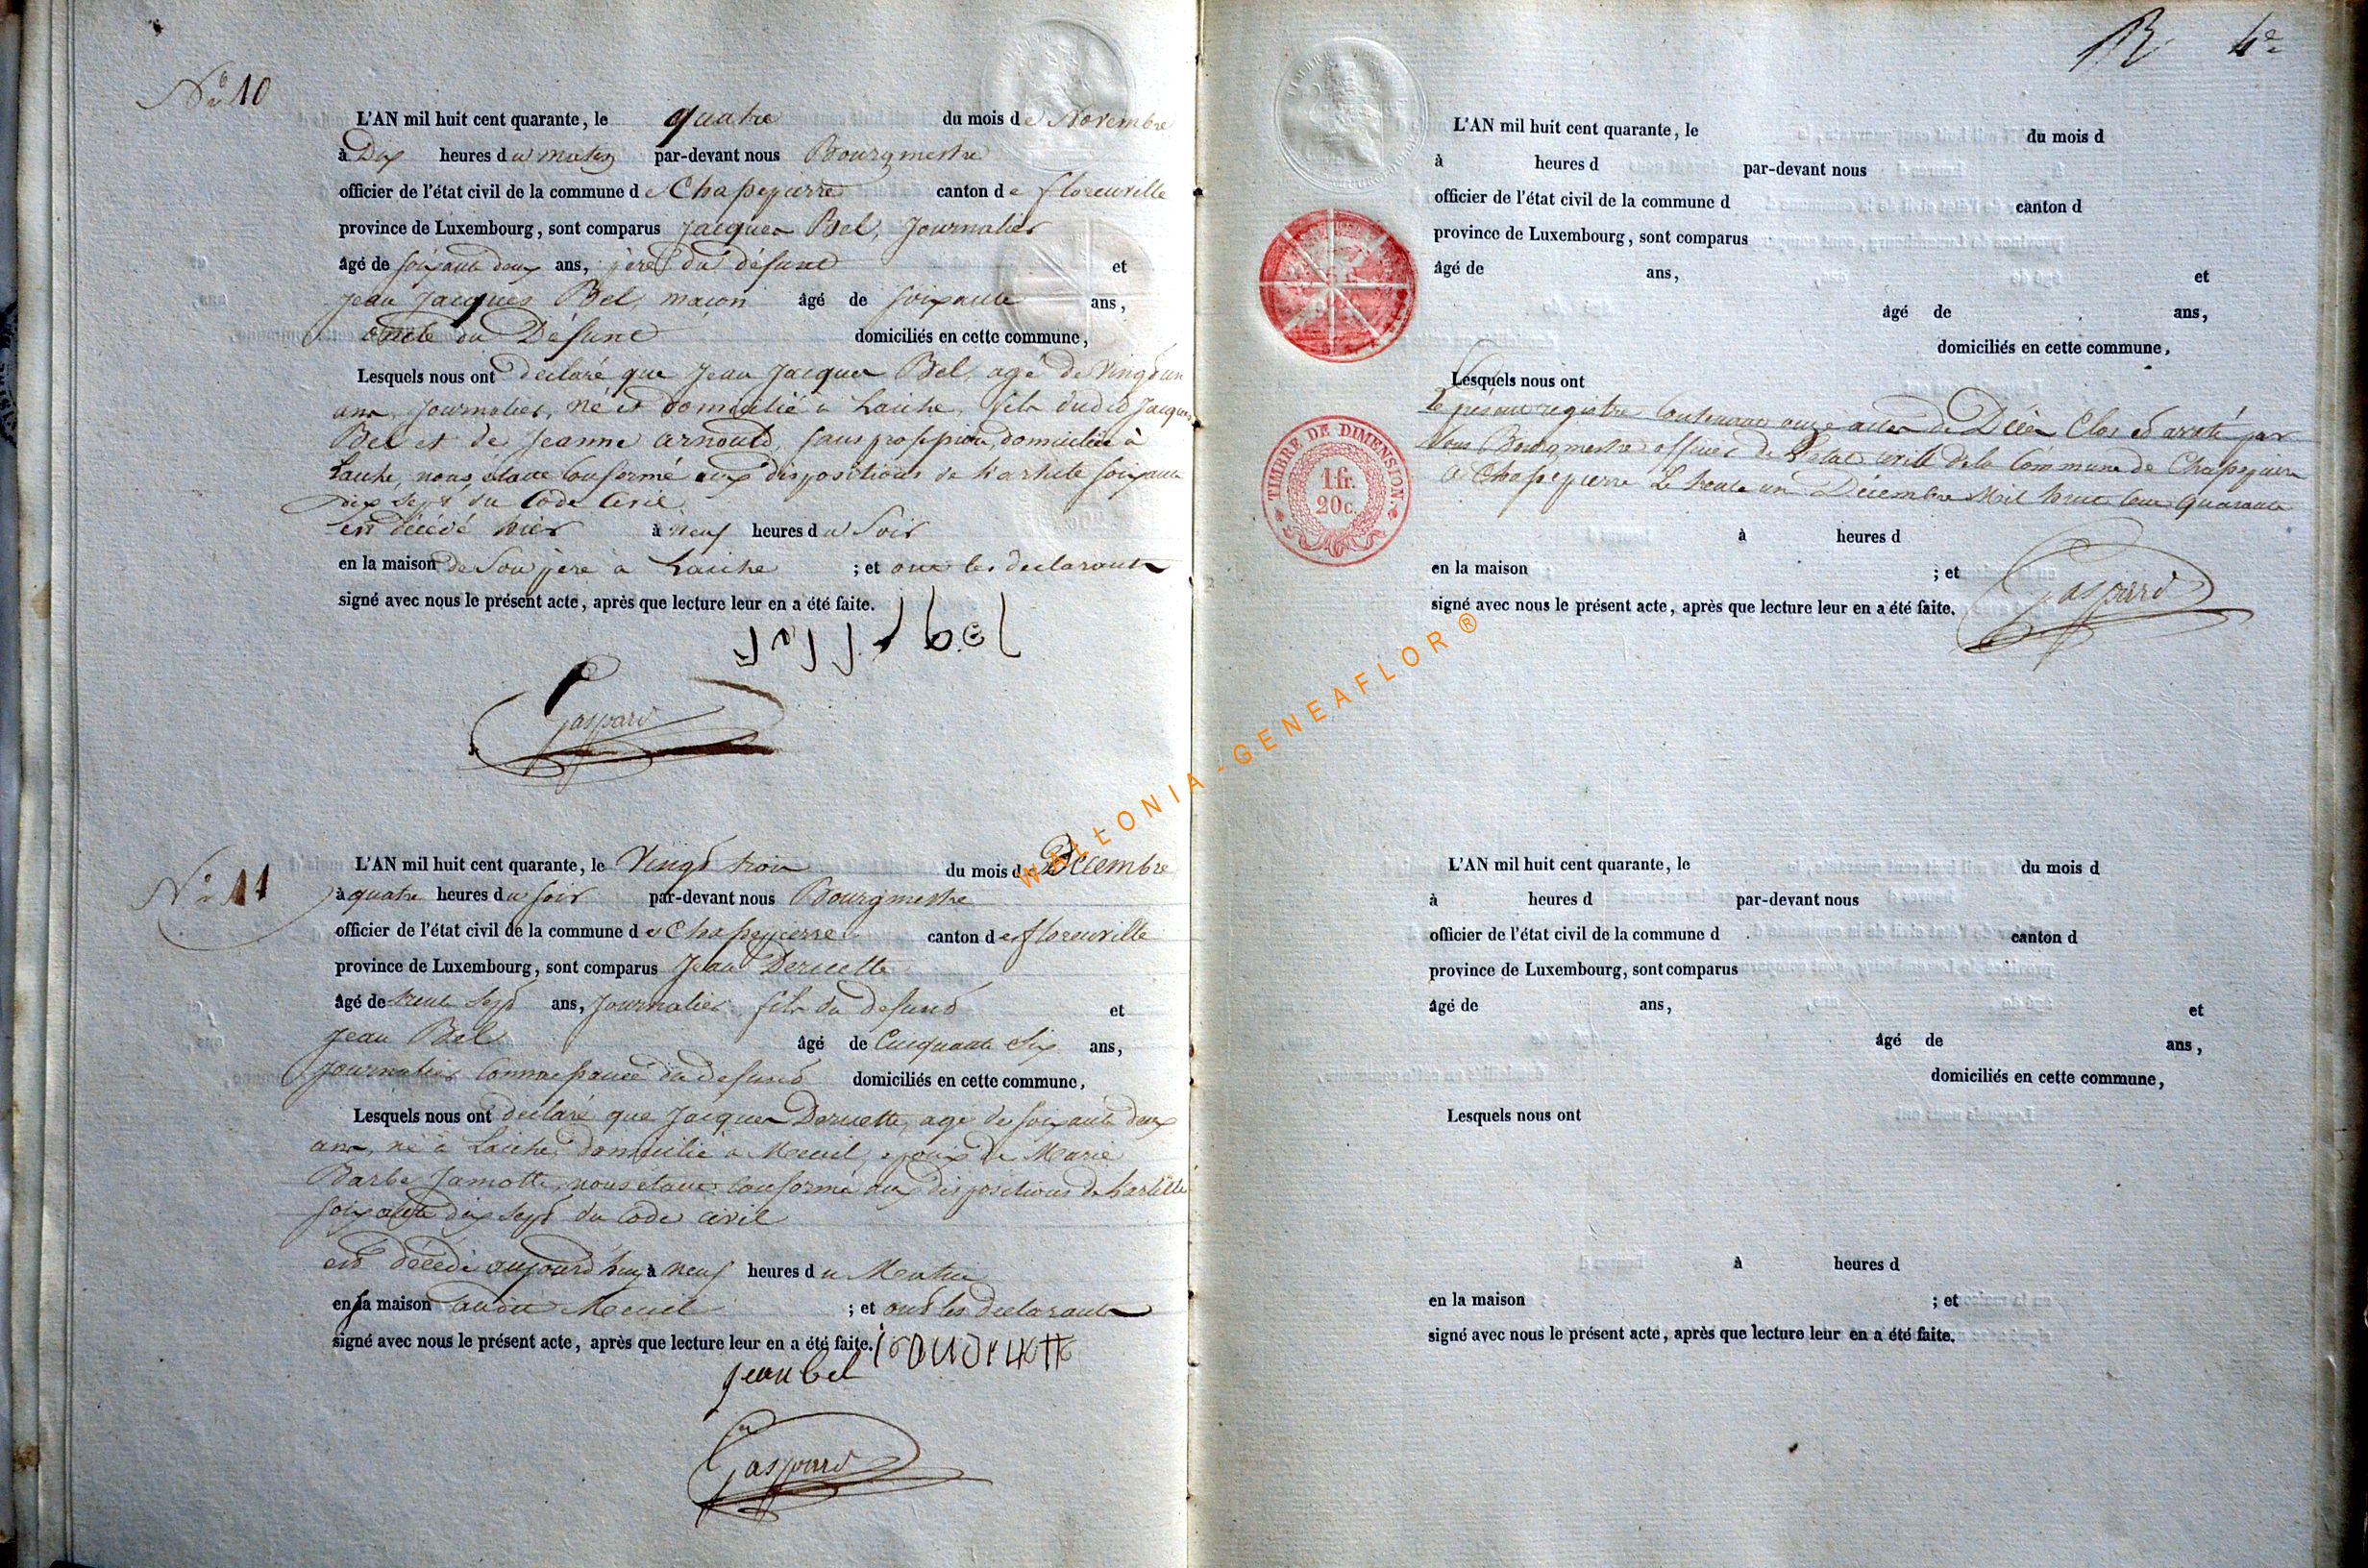 No 10
L'AN mil huit cent quarante, le quatre du mois de Novembre
à Dix heures du matin par-devant nous Bourgmestre
officier de l'état civil de la commune de Chapepierre canton de florenville
province de Luxembourg, sont comparus Jacques Bel, Journalier
âgé de soixante deux ans, père du défunt et
Jean Jacques Bel maçon âgé de soixante ans,
oncle du Défunt domiciliés en cette commune,
Lesquels nous ont declaré que Jean Jacques Bel, agé de vingt un
ans, Journalier, né et domicilié a Laiche, fils dudit Jacques
Bel et de Jeanne arnould, sans profession, domiciliée à
Laiche, nous étant conformé aux dispositions de l'article soixante
dix sept du Code Civil.
est décédé hier à neuf heures du Soir
en la maison de Son père à Laiche ; et ont les declarants
signé avec nous le présent acte, après que lecture leur en a été faite.
bel
Gaspard
No 11
L'AN mil huit cent quarante, le Vingt trois du mois de Décembre
à quatre heures du soir par-devant nous Bourgmestre
officier de l'état civil de la commune de Chapepierre canton de florenville
province de Luxembourg, sont comparus Jean
âgé de trente Sept ans, Journalier fils du defunt et
Jean Bel âgé de Cinquante Six ans,
Journalier Connaissance du defunt domiciliés en cette commune,
Lesquels nous ont declaré que Jacques agé de soixante deux
ans, né à Laiche domicilié a epoux de Marie
Barbe Jamotte, nous étant conformé aux dispositions de l'article
soixante dix sept du Code civil
est décédé aujourd'huy à neuf heures du Matin
en sa maison audit ; et ont les declarants
signé avec nous le présent acte, après que lecture leur en a été faite.
jean bel
Gaspard
4e
L'AN mil huit cent quarante, le du mois d
à heures d par-devant nous
officier de l'état civil de la commune d canton d
province de Luxembourg, sont comparus
âgé de ans, et
âgé de ans,
domiciliés en cette commune,
Lesquels nous ont
Le présent registre Contenant onze actes de Décès Clos et arreté par
Nous Bourgmestre officier de l'état civill de la Commune de Chapepierre
a Chapepierre Le trente un Décembre Mil huit Cent Quarante
TIMBRE DE DIMENSION
1 fr.
20 c.
à heures d
en la maison ; et
signé avec nous le présent acte, après que lecture leur en a été faite.
Gaspard
L'AN mil huit cent quarante, le du mois d
à heures d par-devant nous
officier de l'état civil de la commune d canton d
province de Luxembourg, sont comparus
âgé de ans, et
âgé de ans,
domiciliés en cette commune,
Lesquels nous ont
à heures d
en la maison ; et
signé avec nous le présent acte, après que lecture leur en a été faite.
WALLONIA - GENEAFLOR ®